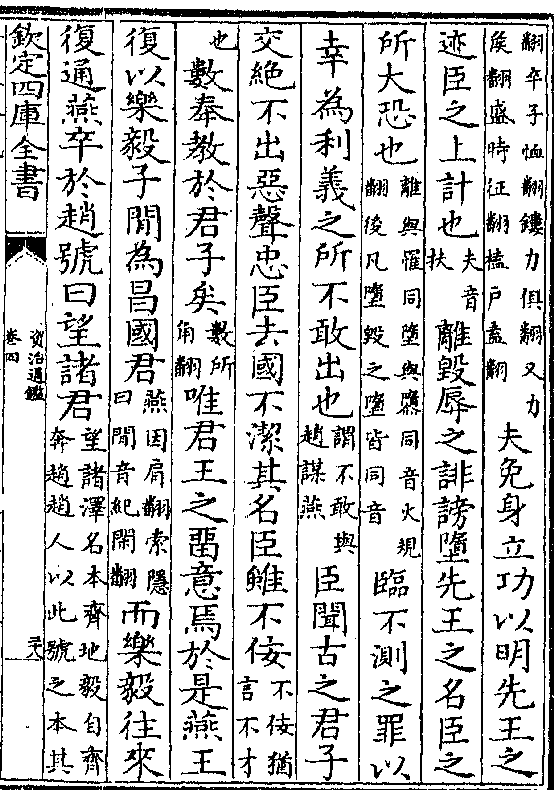 翻卒子恤翻鏤力俱翻又力
侯翻盛時征翻榼戶盍翻
夫免身立功以明先王之
迹臣之上計也夫音扶離毀辱之誹謗墮先王之名臣之
所大恐也離與罹同墮與隳同音火規翻後凡墮毀之墮皆同音臨不測之罪以
幸為利義之所不敢出也謂不敢與趙謀燕臣聞古之君子
交絶不出惡聲忠臣去國不潔其名臣雖不佞不佞猶言不才
也數奉教於君子矣數所角翻唯君王之畱意焉於是燕王
復以樂毅子閒為昌國君燕因肩翻索隱曰閒音紀閑翻而樂毅往來
復通燕卒於趙號曰望諸君望諸澤名本齊地毅自齊奔趙趙人以此號之本其
欽定四庫全書
資治通鑑
卷四